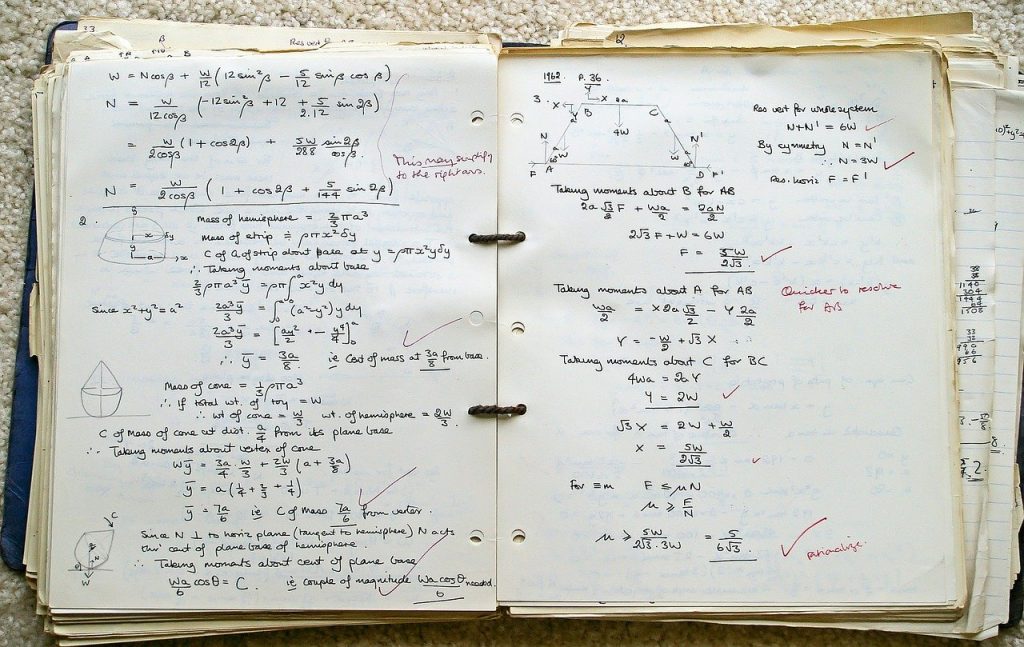 33
β
Res vert
W = Ncosβ + W/12 (12 sin²β - 5/12 sinβ cosβ)
N = W/12cosβ (-12sin²β + 12 + 5/2.12 sin 2β)
= W/2cosβ (1 + cos2β) + 5W/288 sin2β/cosβ.
This may simplify
to the right ans.
N = W/2cosβ (1 + cos2β + 5/144 sin 2β)
2.
Mass of hemisphere = 2/3 πa³
Mass of strip = ρπx²δy
C of M of strip about base at y = ρπx²yδy
∴ Taking moments about base
2/3 ρπa³ȳ = ρπ∫₀ᵃ x²y dy
Since x²+y²=a² 2a³ȳ/3 = ∫₀ᵃ (a²-y²)y dy
2a³ȳ/3 = [ay²/2 + - y⁴/4]₀ᵃ
∴ ȳ = 3a/8 ie Cent of mass at 3a/8 from base.
Mass of cone = 1/3 ρπa³
∴ If total wt. of toy = W
∴ wt of cone = W/3 wt. of hemisphere = 2W/3.
C of Mass of cone at dist. a/4 from its plane base
∴ Taking moments about vertex of cone
Wȳ = 3a/4 . W/3 + 2W/3 (a + 3a/8)
ȳ = a(1/4 + 2/3 + 1/4)
ȳ = 7a/6 ie C of Mass 7a/6 from vertex.
C
Since N ⊥ to horiz plane (tangent to hemisphere) N acts
thro' cent of plane base of hemisphere.
∴ Taking moments about cent of plane base
Wa/6 cosθ = C. ie couple of magnitude Wa cosθ/6 needed.
12.
1962 P. 36.
3.
Y
X
X
2a
B
C
Y
4W
N
W
W
N'
F
A
D
F'
Res vert for whole system
N+N' = 6W
By symmetry N = N'
∴ N = 3W
Res. horiz F = F'
Taking moments about B for AB
2a√3/2 F + Wa/2 = 2aN/2
2√3 F + W = 6W
F = 5W/2√3.
Taking moments about A for AB
Quicker to resolve
for AB
Wa/2 = X 2a √3/2 - Y 2a/2
Y = -W/2 + √3 X
Taking moments about C for BC
4Wa = 2a Y
Y = 2W
√3 X = 2W + W/2
X = 5W/2√3
For ≡m F ≤ μN
μ ≥ F/N
μ ≥ 5W/2√3.3W = 5/6√3.
rationalize.
38
38
1140
304
1444
64
1508